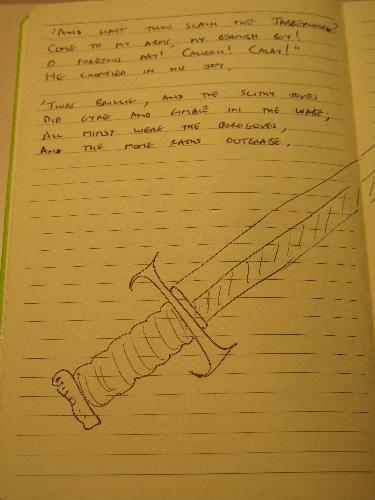 'AND HAST THOU SLAIN THE JABBERWOCK?
COME TO MY ARMS, MY BEAMISH BOY!
O FRABJOUS DAY! CALLOOH! CALAY!"
HE CHORTLED IN HIS JOY.
'TWAS BRILLIG, AND THE SLITHY TOVES
DID GYRE AND GIMBLE IN THE WABE,
ALL MIMSY WERE THE BOROGOVES,
AND THE MOME RATHS OUTGRABE.